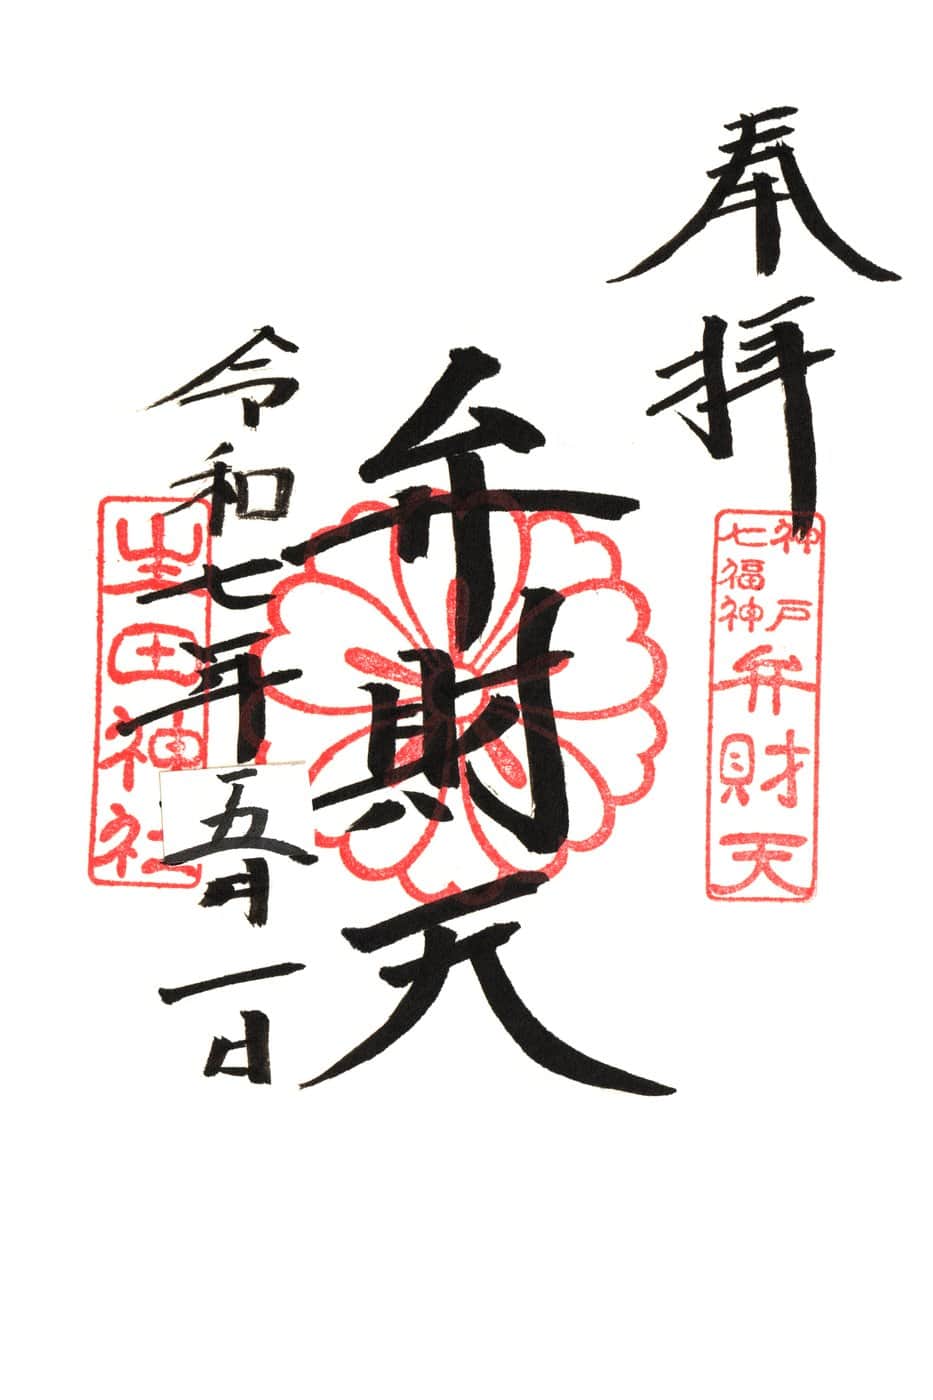 奉拝
神戸
七福神
弁財天
弁財天
令和七年五月一日
生田神社